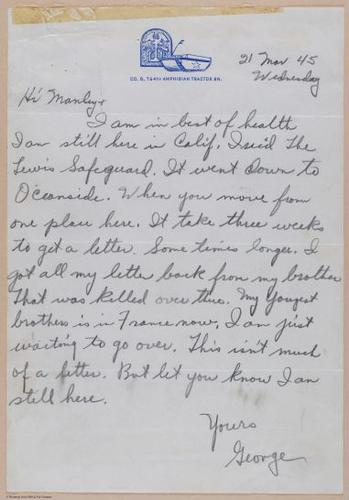 CO. B, 764TH AMPHIBIAN TRACTOR BN.
21 Mar 45
Wednesday
Hi Manley,
I am in best of health
I am still here in Calif. I
The
Lewis Safeguard. It went down to
Oceanside. When you move from
one place here. It take three weeks
to get a letter. Some times longer. I
got all my letter back from my brother
That was killed over there. My Yougest
brothers is in France now, I am just
waiting to go over. This isn't much
of a letter. But let you know I am
still here.
Yours
George